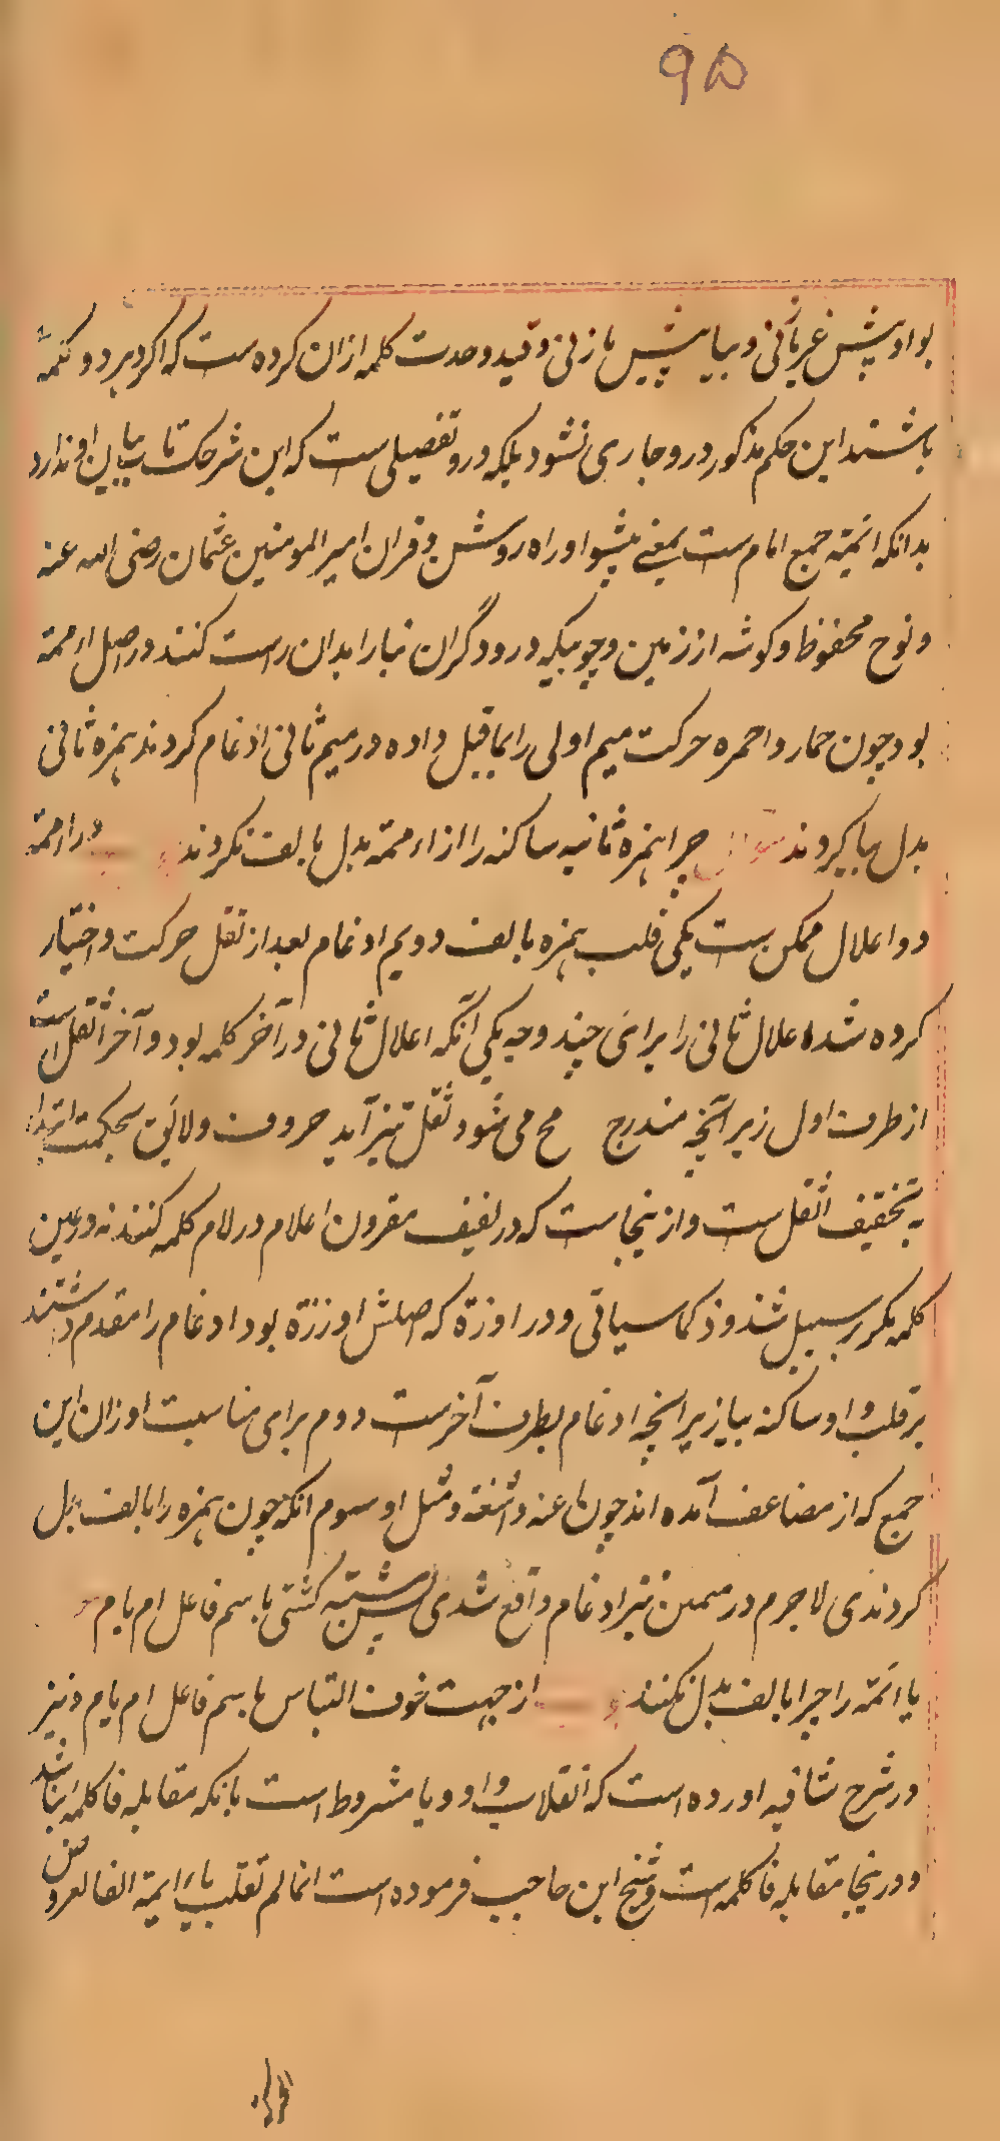 ۹۵
بواو پیش غیر ثانی و بیا پیش یا زنی و قید وحدت کلمه ازان کرده ست که اگر هر دو کلمه
باشند این حکم مذکور درو جاری نشود بلکه درو تفصیلی ست که این شرح کتاب بیان او ندارد
بدانکه ائمة جمع امام ست بمعنے پیشوا و راه روشن و قران امیر المومنین عثمان رضی الله عنه
و لوح محفوظ و گوشه از زمین و چوبیکه درودگران بنا را بدان راست کنند در اصل اءممة
بود چون حمار و احمره حرکت میم اولی را بماقبل داده در میم ثانی ادغام کردند همزه ثانی
بدل بیا کردند سوال چرا همزه ثانیه ساکنه را از اءممة بدل بالف نکردند در اءممة
دو اعلال ممکن ست یکی قلب همزه بالف دویم ادغام بعد از نقل حرکت و اختیار
کرده شد اعلال ثانی را برای چند وجه یکی آنکه اعلال ثانی در آخر کلمه بود و آخر اثقل است
از طرف اول زیرا آنچه مندرج مح می شود ثقل نیز آید حروف ولائق بحکمت ابتدا
به تخفیف اثقل ست و از ینجاست که در لفیف مقرون اعلام در لام کلمه کنند نه در عین
کلمه مگر بر سبیل شذوذ کما سیاتی و در اوزة که اصلش اوززة بود ادغام را مقدم داشتند
بر قلب واو ساکنه بیا زیرا آنچه ادغام بطرف آخرست دوم برای مناسبت اوزان این
جمع که از مضاعف آمده اند چون و مثل او سوم آنکه چون همزه را بالف بدل
کردندی لاجرم در میمین نیز ادغام واقع شدی پس مشتبه گشتی باسم فاعل ام یام
یا ائمه را چرا بالف بدل نکنند از جهت خوف التباس باسم فاعل ام یام و نیز
در شرح شافیه اورده است که انقلاب واو و یا مشروط است بانکه مقابله فا کلمه نباشد
و درینجا مقابله فا کلمه است و شیخ ابن حاجب فرموده است انما لم تقلب یاء ایمة الفا لعروض